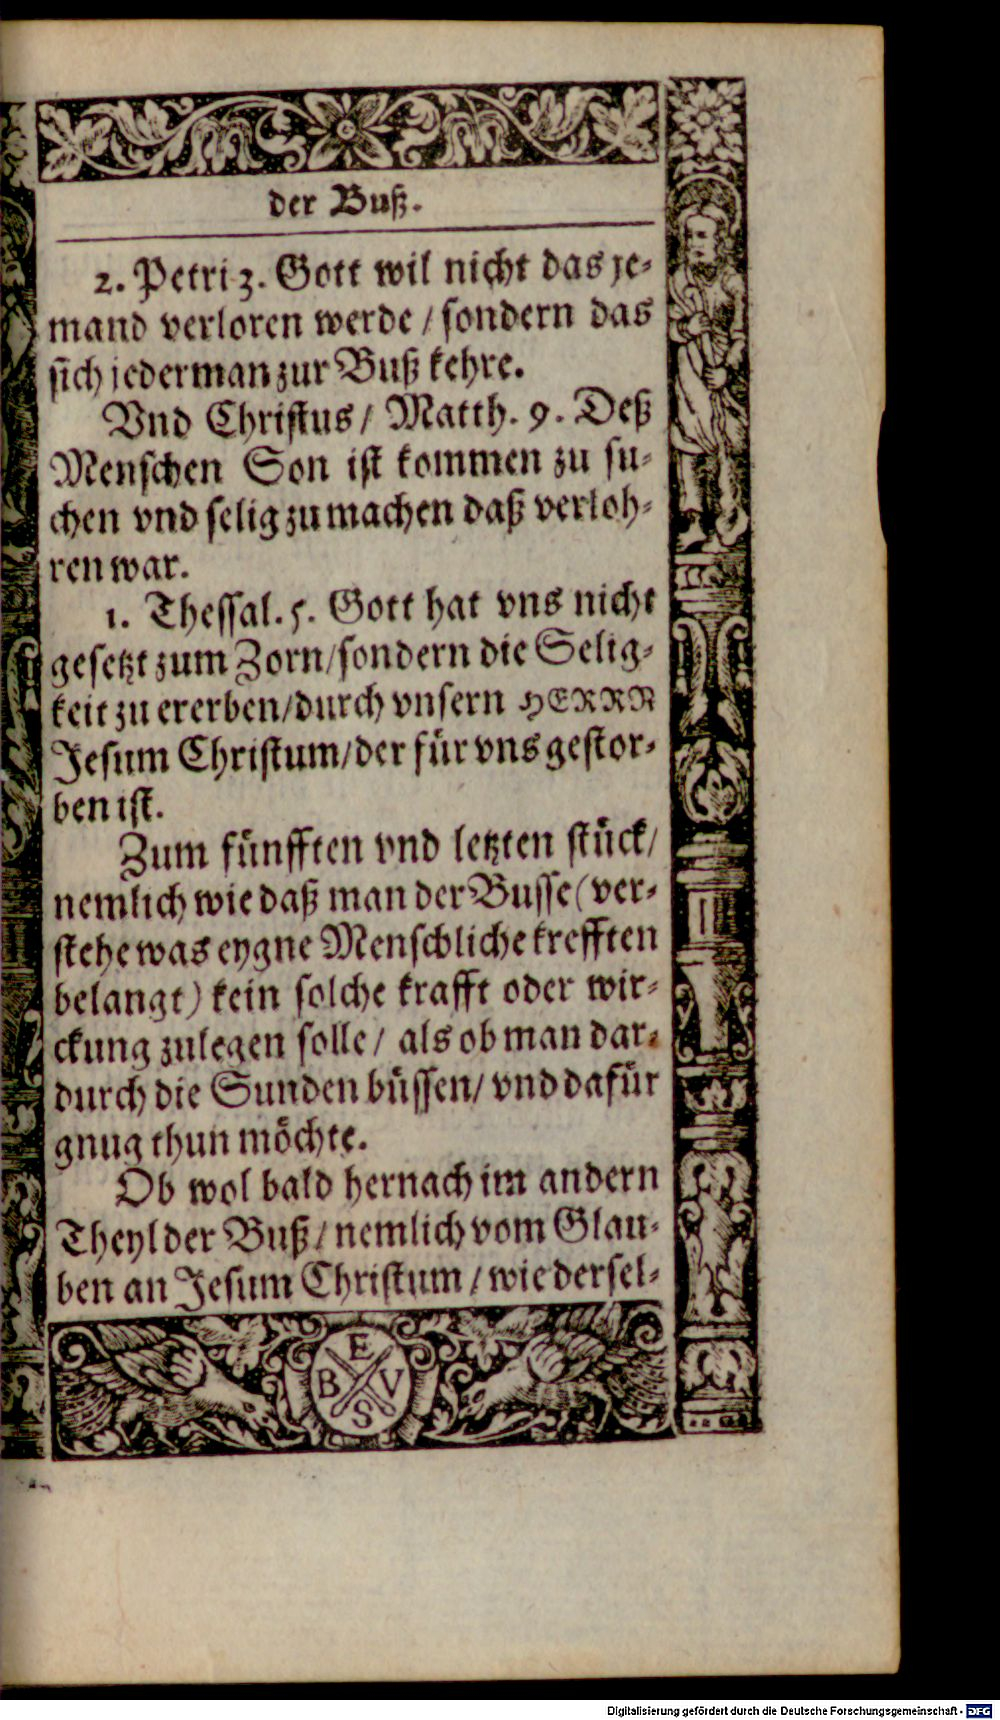 der Buß.
2. Petri 3. Gott wil nicht das je-
mand verloren werde / sondern das
sich jederman zur Buß kehre.
Vnd Christus / Matth. 9. Deß
Menschen Son ist kommen zu su-
chen vnd selig zu machen daß verloh-
ren war.
1. Thessal. 5. Gott hat vns nicht
gesetzt zum Zorn / sondern die Selig-
keit zu ererben / durch vnsern HERRN
Jesum Christum / der für vns gestor-
ben ist.
Zum fünfften vnd letzten stück /
nemlich wie daß man der Busse (ver-
stehe was eygne Menschliche krefften
belangt) kein solche krafft oder wir-
ckung zulegen solle / als ob man dar-
durch die Sunden büssen / vnd dafür
gnug thun möchte.
Ob wol bald hernach im andern
Theyl der Buß / nemlich vom Glau-
ben an Jesum Christum / wie dersel-
E
B V
S
Digitalisierung gefördert durch die Deutsche Forschungsgemeinschaft - DFG